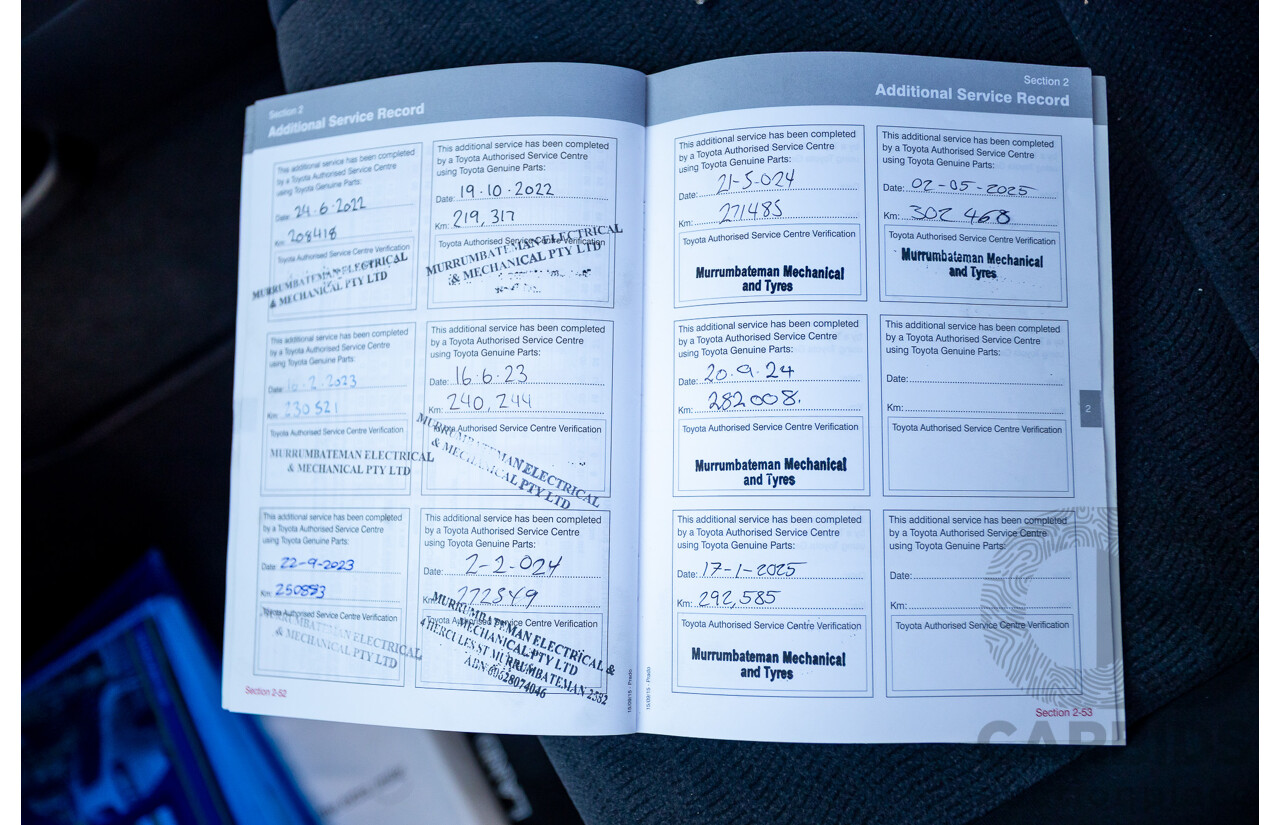 Section 2
Additional Service Record
This additional service has been completed
by a Toyota Authorised Service Centre
using Toyota Genuine Parts:
Date: 24.6.2022
Km: 208418
Toyota Authorised Service Centre Verification
MURRUMBATEMAN ELECTRICAL
& MECHANICAL PTY LTD
This additional service has been completed
by a Toyota Authorised Service Centre
using Toyota Genuine Parts:
Date: 19.10.2022
Km: 219,317
Toyota Authorised Service Centre Verification
MURRUMBATEMAN ELECTRICAL
& MECHANICAL PTY LTD
This additional service has been completed
by a Toyota Authorised Service Centre
using Toyota Genuine Parts:
Date: 16.2.2023
Km: 230521
Toyota Authorised Service Centre Verification
MURRUMBATEMAN ELECTRICAL
& MECHANICAL PTY LTD
This additional service has been completed
by a Toyota Authorised Service Centre
using Toyota Genuine Parts:
Date: 16.6.23
Km: 240,244
Toyota Authorised Service Centre Verification
MURRUMBATEMAN ELECTRICAL
& MECHANICAL PTY LTD
This additional service has been completed
by a Toyota Authorised Service Centre
using Toyota Genuine Parts:
Date: 22-9-2023
Km:
Toyota Authorised Service Centre Verification
MURRUMBATEMAN ELECTRICAL
& MECHANICAL PTY LTD
This additional service has been completed
by a Toyota Authorised Service Centre
using Toyota Genuine Parts:
Date: 2-2-024
Km:
Toyota Authorised Service Centre Verification
MURRUMBATEMAN ELECTRICAL &
MECHANICAL PTY LTD
4 HERCULES ST MURRUMBATEMAN 2582
ABN 60628074046
Section 2-52
15/09/15 - Prado
Section 2
Additional Service Record
This additional service has been completed
by a Toyota Authorised Service Centre
using Toyota Genuine Parts:
Date: 21-5-024
Km: 271485
Toyota Authorised Service Centre Verification
Murrumbateman Mechanical
and Tyres
This additional service has been completed
by a Toyota Authorised Service Centre
using Toyota Genuine Parts:
Date: 02-05-2025
Km: 302 468
Toyota Authorised Service Centre Verification
Murrumbateman Mechanical
and Tyres
This additional service has been completed
by a Toyota Authorised Service Centre
using Toyota Genuine Parts:
Date: 20.9.24
Km: 282008.
Toyota Authorised Service Centre Verification
Murrumbateman Mechanical
and Tyres
This additional service has been completed
by a Toyota Authorised Service Centre
using Toyota Genuine Parts:
Date:
Km:
Toyota Authorised Service Centre Verification
2
This additional service has been completed
by a Toyota Authorised Service Centre
using Toyota Genuine Parts:
Date: 17-1-2025
Km: 292,585
Toyota Authorised Service Centre Verification
Murrumbateman Mechanical
and Tyres
This additional service has been completed
by a Toyota Authorised Service Centre
using Toyota Genuine Parts:
Date:
Km:
Toyota Authorised Service Centre Verification
15/09/15 - Prado
Section 2-53